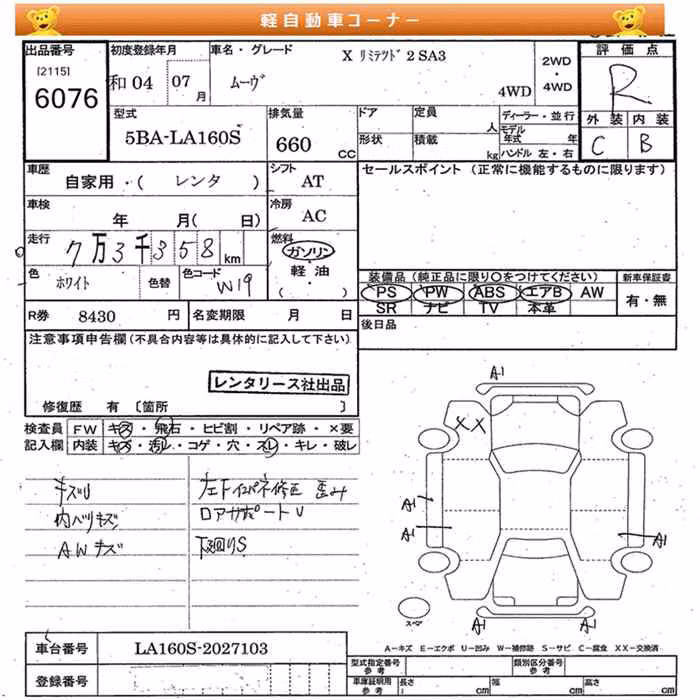 軽自動車コーナー
出品番号
[2115]
6076
初度登録年月
和04 07月
車名・グレード
X リミテッド2 SA3
ムーヴ
4WD
2WD
・
4WD
評価点
R
外装 内装
C B
型式
5BA-LA160S
排気量
660 CC
ドア
定員 人
形状
積載 kg
ディーラー・並行
モデル年式 年
ハンドル 左・右
車歴
自家用・( レンタ )
シフト
AT
車検
年 月( 日)
冷房
AC
走行
7万3千358km
燃料
ガソリン
軽・油
( ・ )
色
ホワイト
色替
色コード
W19
セールスポイント (正常に機能するものに限ります)
装備品 (純正品に限り〇をつけてください)
PS PW ABS エアB AW
SR ナビ TV 本革
新車保証書
有・無
R券 8430 円
名変期限 月 日
後日品
注意事項申告欄 (不具合内容等は具体的に記入して下さい)
レンタリース社出品
修復歴 有 [箇所 ]
検査員 FW キズ・飛石・ヒビ割・リペア跡・×要
記入欄 内装 キズ・汚レ・コゲ・穴・スレ・キレ・破レ
キズU
内ハリキズ
AWキズ
左F インパネ修正 歪み
ロアサポートU
下廻りS
A1
XX
A1
A1
A1
A1
A1
スペア
A-キズ E-エクボ U-凹み W-補修跡 S-サビ C-腐食 XX-交換済
車台番号
LA160S-2027103
登録番号
型式指定番号 参考
類別区分番号 参考
車庫証明用 参考
長さ cm
幅 cm
高さ cm